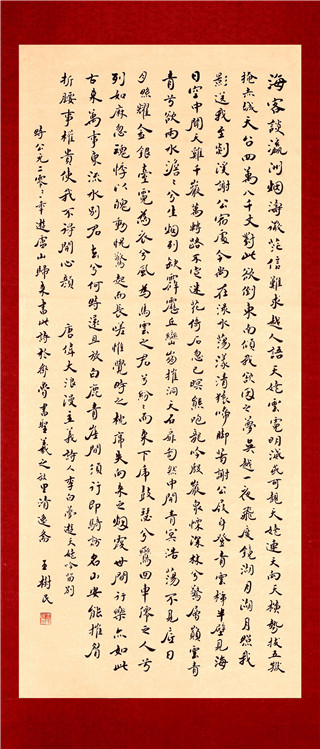 海客談瀛洲烟濤微茫信難求越人語天姥雲霓明滅或可覩天姥連天向天横勢拔五嶽
掩赤城天台四萬八千丈對此欲倒東南傾我欲因之夢吳越一夜飛度鏡湖月湖月照我
影送我至剡溪謝公宿處今尚在渌水蕩漾清猿啼脚著謝公屐身登青雲梯半壁見海
日空中聞天雞千巖萬轉路不定迷花倚石忽已暝熊咆龍吟殷巖泉慄深林兮驚層巔雲青
青兮欲雨水澹々兮生烟列缺霹靂丘巒崩摧洞天石扉訇然中開青冥浩蕩不見底日
月照耀金銀臺霓為衣兮風為馬雲之君兮紛々而来下虎鼓瑟兮鸞回車仙之人兮
列如麻忽魂悸以魄動怳驚起而長嗟惟覺時之枕席失向来之烟霞世間行樂亦如此
古来萬事東流水别君去兮何時還且放白鹿青崖間須行即騎訪名山安能摧眉
折腰事權貴使我不得開心顔 唐偉大浪漫主義詩人李白夢遊天姥吟留别
時公元二零零年遊廬山歸来書此詩於齊魯書聖羲之故里清逸齋
王樹民